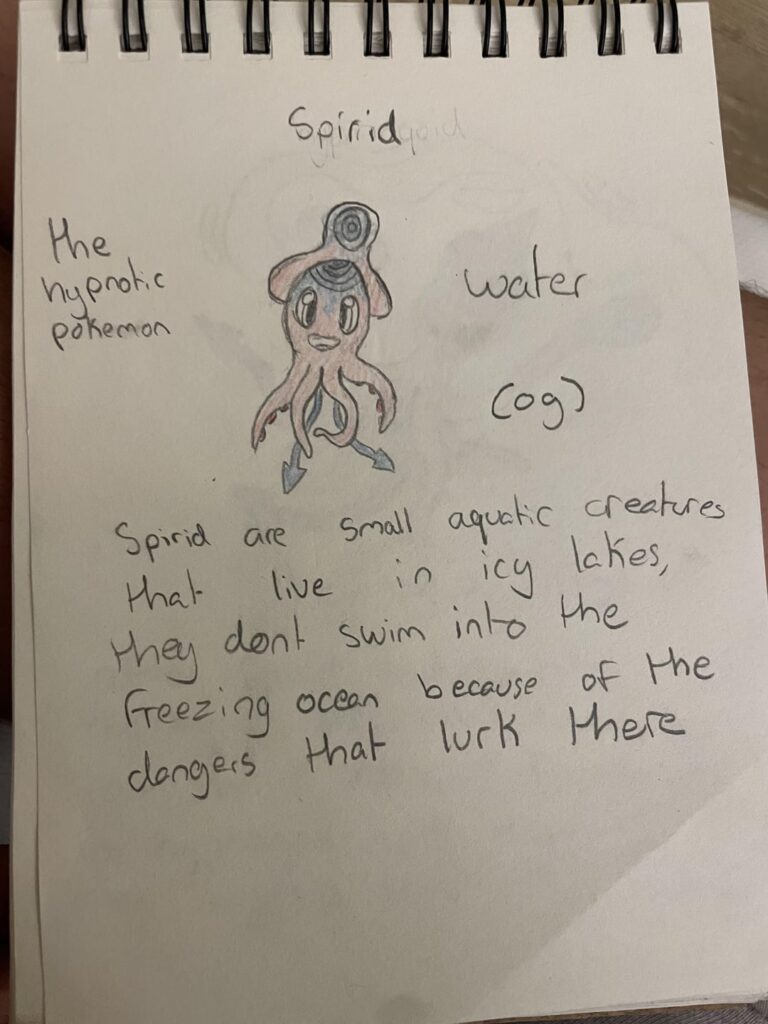 Spirid
the
hypnotic
pokemon
water
(og)
Spirid are small aquatic creatures
that live in icy lakes,
they dont swim into the
freezing ocean because of the
dangers that lurk there